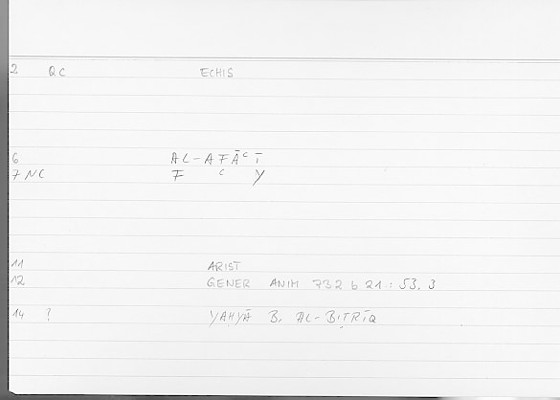 2 QC ECHIS
6 AL-AFĀᶜĪ
7 NC F ᶜ Y
11 ARIST
12 GENER ANIM 732 b 21 : 53.3
14 ? YAḤYĀ B. AL-BIṬRĪQ